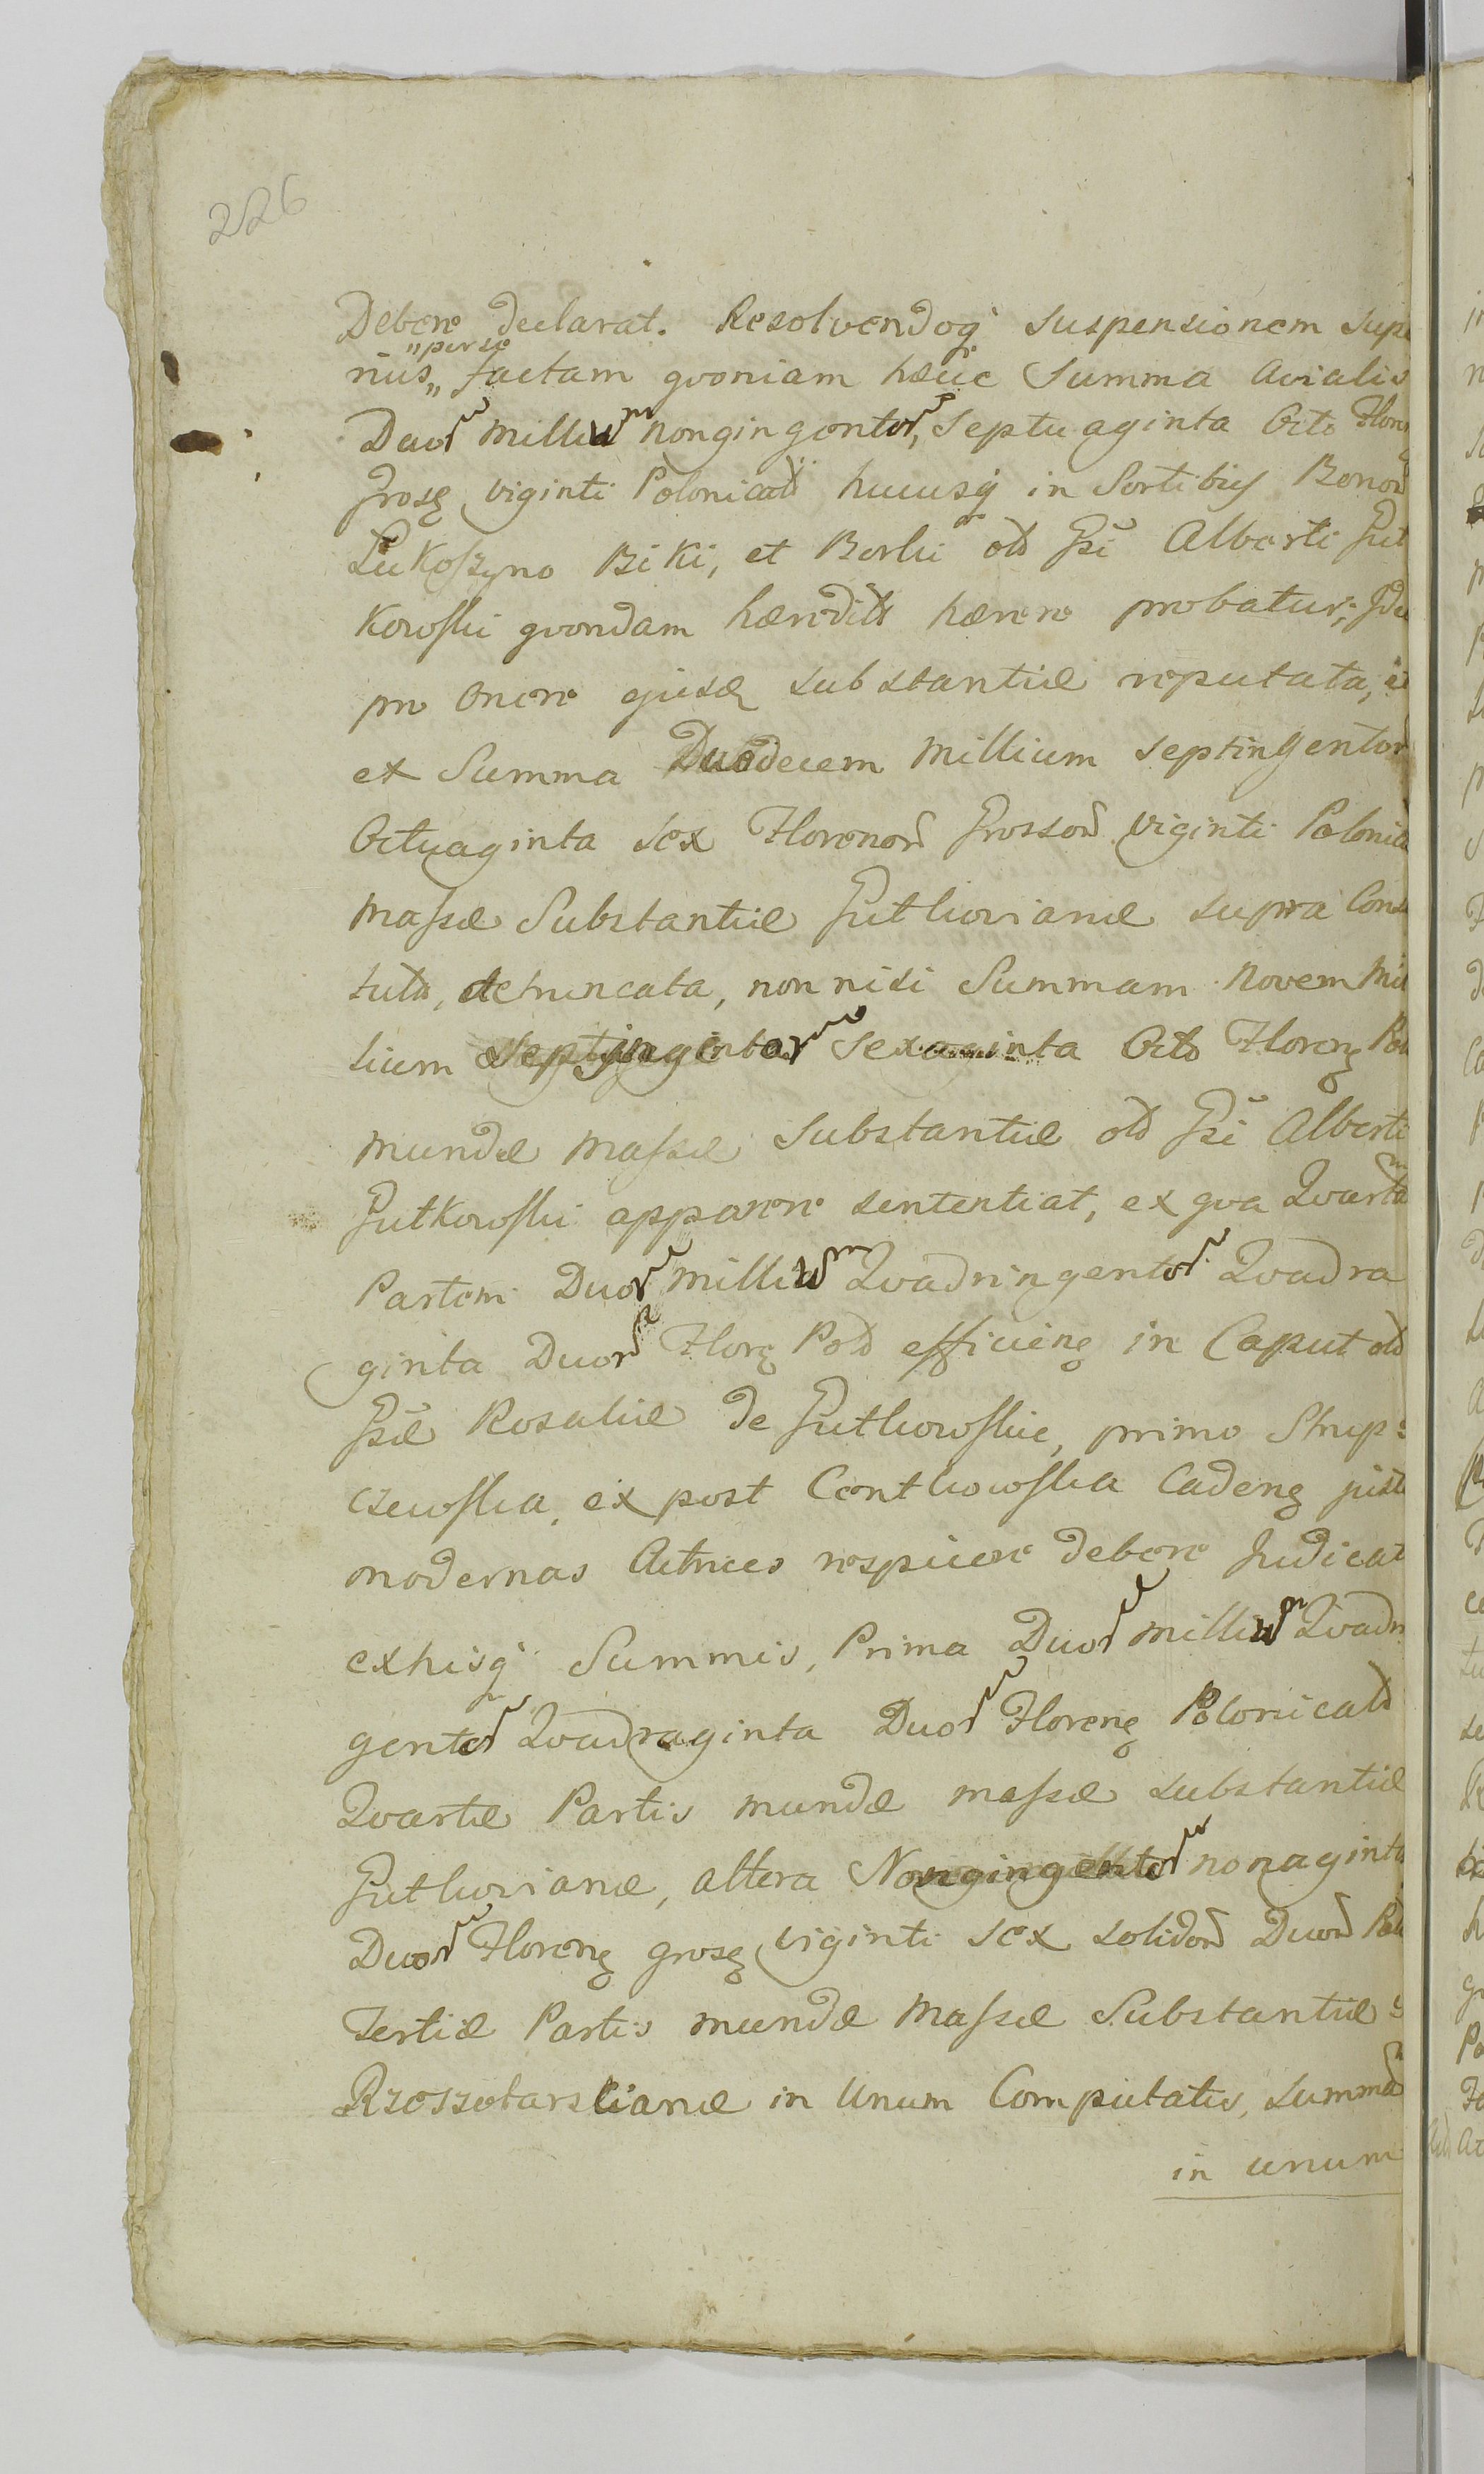 226
Debere declarat. Resolvendoq suspensionem supe
"per se
rius" factam qvoniam hæcce Summa avialis
Duor Millium nongingentor, Septuaginta Octo Floren
Grosz viginti Polonical hucusq in Sortibus Bonor
Lukoszyno Biki, et Borki old Gsi Alberti Gut
kowski qvondam hæredits hærere probatur, Ide
pro onere ejusd substantiæ reputata,
et Summa Duodecem Millium septingentor
Octuaginta sex Florenor Grossor viginti Polonica
Massæ Substantiæ Gutkovianæ supra Cons
tuta, detruncata, nonnisi Summam Novem Mil
lium Septingentor Sexaginta Octo Floren Pol
mundæ Massæ Substantiæ old Gsi Alberti
Gutkowski apparere sententiat, ex qva Qvarta
Partem Duor Millium Qvadringentor Qvadra
ginta Duor Flor Pol efficien in Caput old
Gsæ Rosaliæ de Gutkowskie, primo Strup:
czewska, ex post Centkowska Caden juste
modernas Actrices respicere debere Judicat
exhisq Summis, Prima Duor Millium Qvadri
gentor Qvadraginta Duor Floren Polonicald
Qvartæ Partis mundæ massæ substantiæ
Gutkovianæ, altera Nongingentor nonaginta
Duor Floren grosz viginti sex solidor Duor Pol
Tertiæ Partis mundæ Massæ Substantiæ
Rzeszotarscianæ in Unum Computatis, summa
in unum